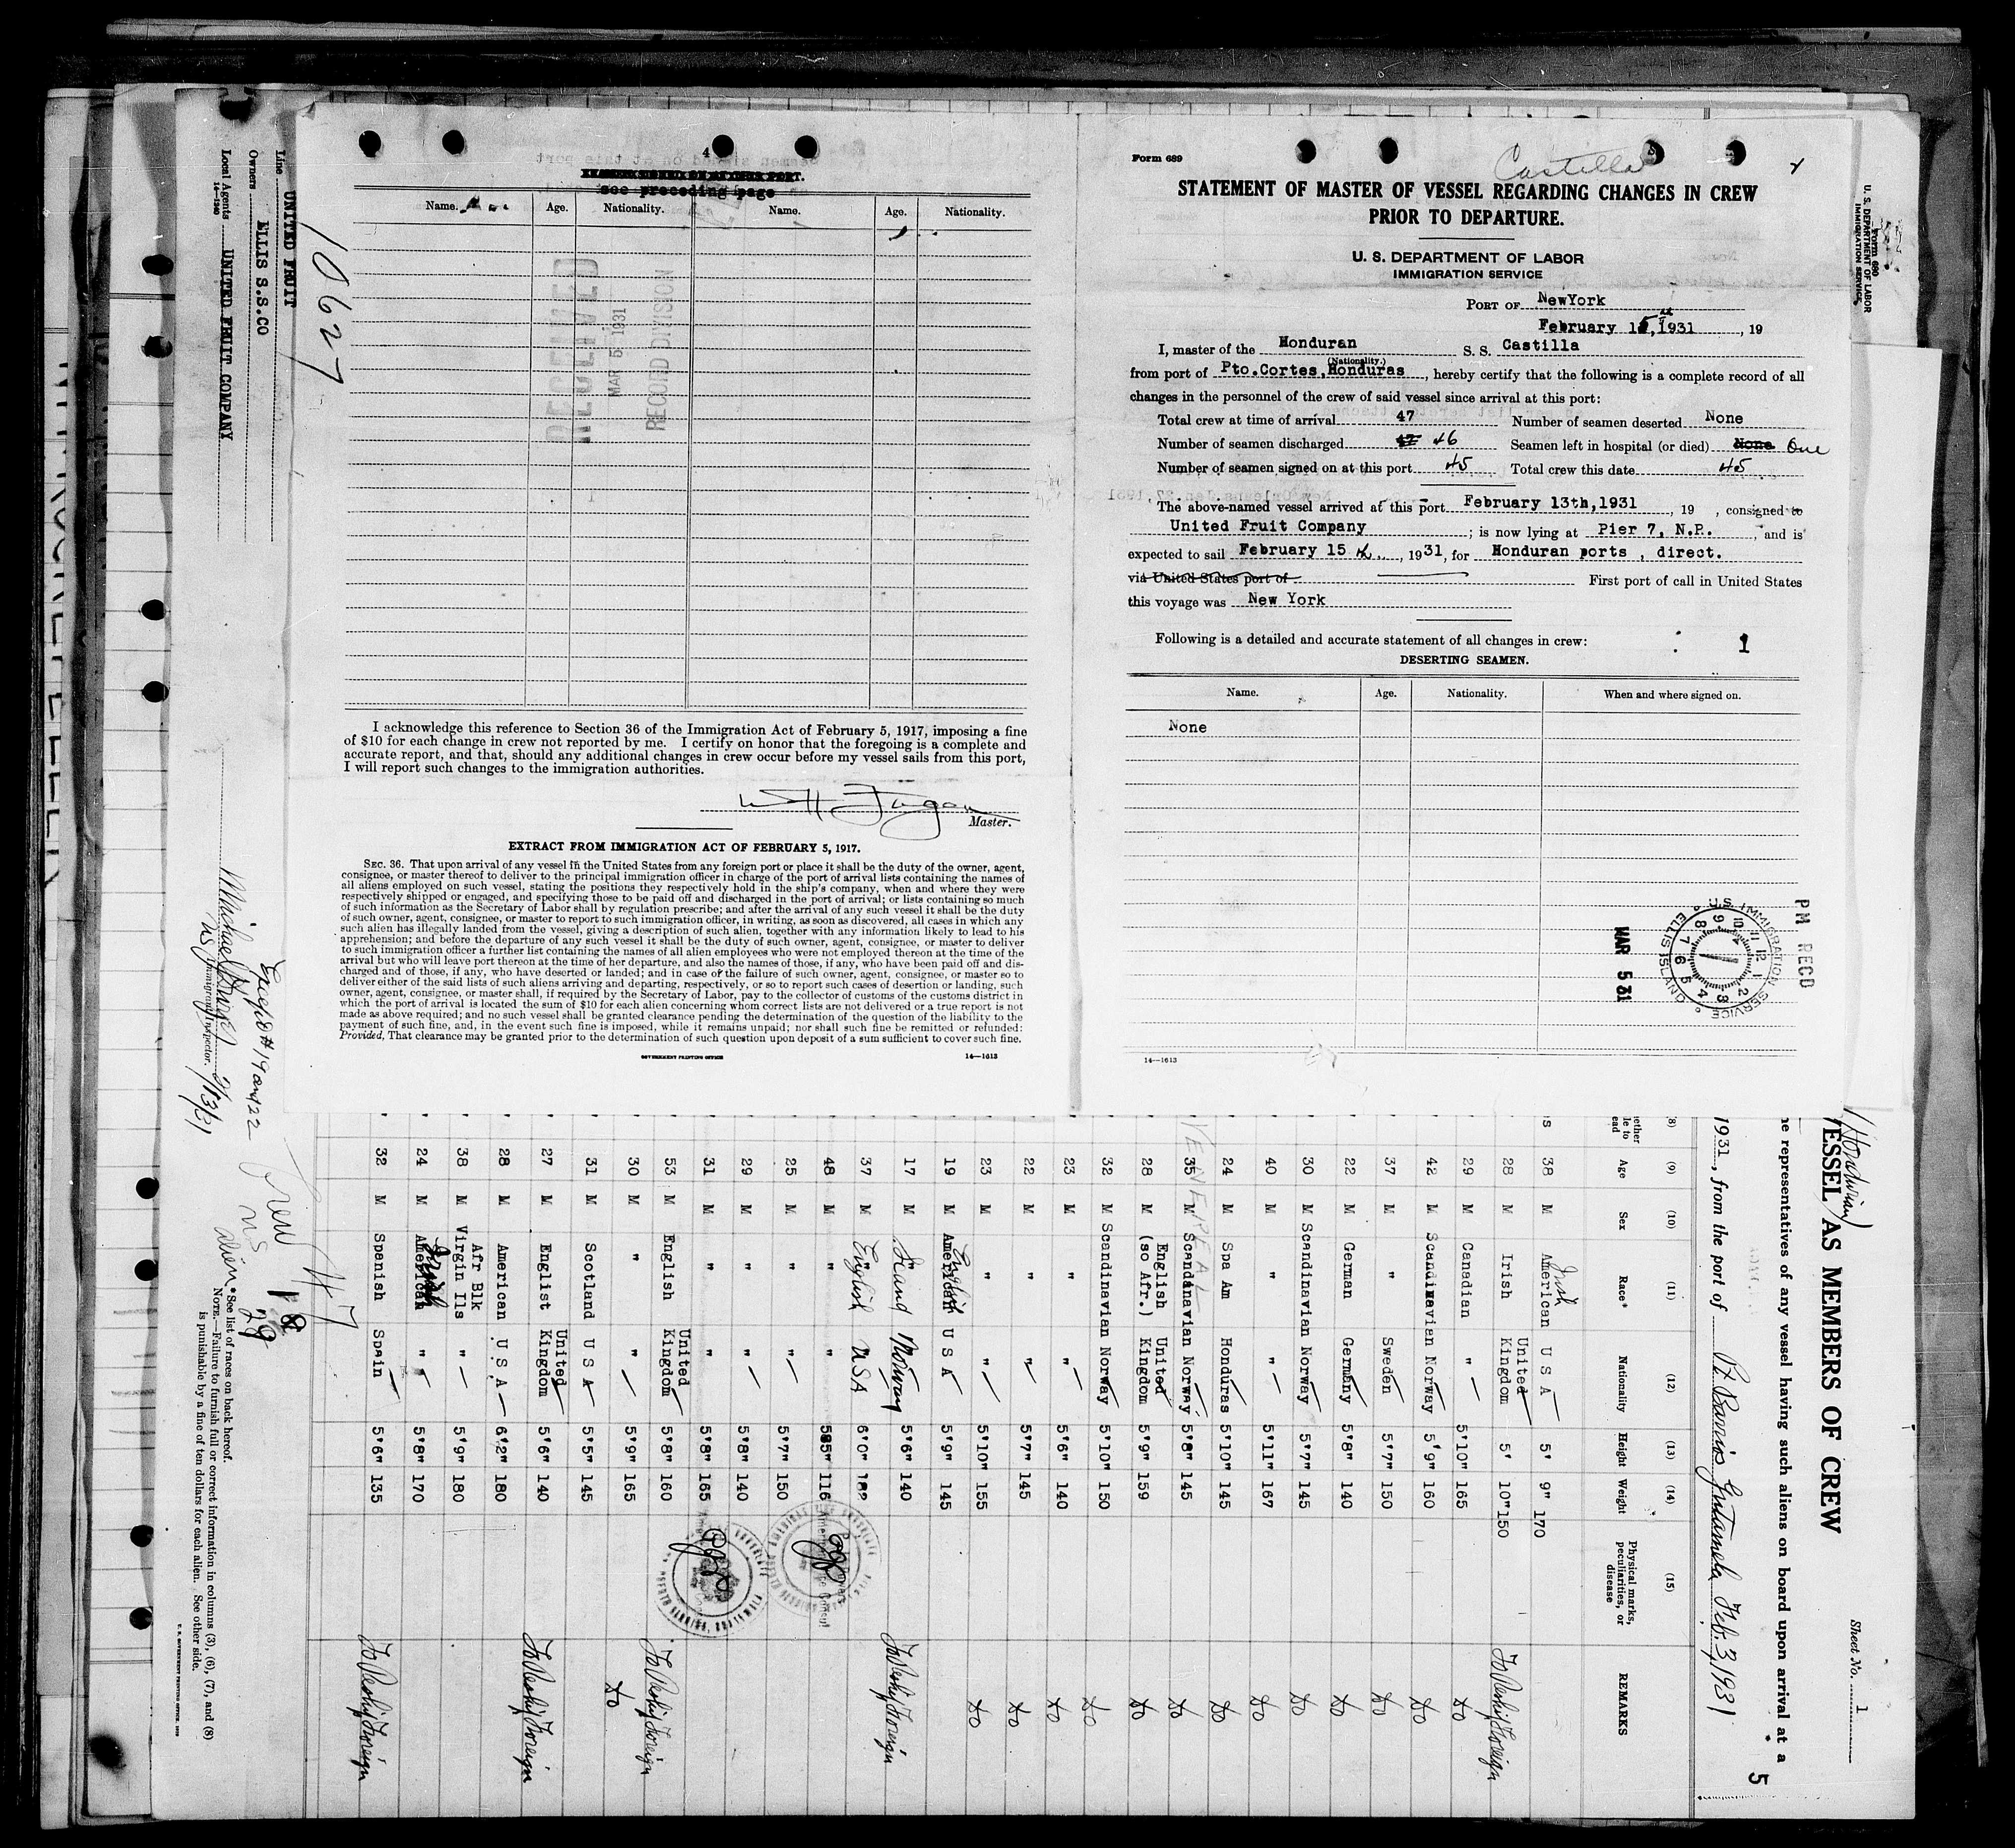 4
see preceding page
Name. Age. Nationality. Name. Age. Nationality.
RECEIVED
MAR 5 1931
RECORD DIVISION
I acknowledge this reference to Section 36 of the Immigration Act of February 5, 1917, imposing a fine
of $10 for each change in crew not reported by me. I certify on honor that the foregoing is a complete and
accurate report, and that, should any additional changes in crew occur before my vessel sails from this port,
I will report such changes to the immigration authorities.
Master.
EXTRACT FROM IMMIGRATION ACT OF FEBRUARY 5, 1917.
SEC. 36. That upon arrival of any vessel in the United States from any foreign port or place it shall be the duty of the owner, agent,
consignee, or master thereof to deliver to the principal immigration officer in charge of the port of arrival lists containing the names of
all aliens employed on such vessel, stating the positions they respectively hold in the ship's company, when and where they were
respectively shipped or engaged, and specifying those to be paid off and discharged in the port of arrival; or lists containing so much
of such information as the Secretary of Labor shall by regulation prescribe; and after the arrival of any such vessel it shall be the duty
of such owner, agent, consignee, or master to report to such immigration officer, in writing, as soon as discovered, all cases in which any
such alien has illegally landed from the vessel, giving a description of such alien, together with any information likely to lead to his
apprehension; and before the departure of any such vessel it shall be the duty of such owner, agent, consignee, or master to deliver
to such immigration officer a further list containing the names of all alien employees who were not employed thereon at the time of the
arrival but who will leave port thereon at the time of her departure, and also the names of those, if any, who have been paid off and dis-
charged and of those, if any, who have deserted or landed; and in case of the failure of such owner, agent, consignee, or master so to
deliver either of the said lists of such aliens arriving and departing, respectively, or so to report such cases of desertion or landing, such
owner, agent, consignee, or master shall, if required by the Secretary of Labor, pay to the collector of customs of the customs district in
which the port of arrival is located the sum of $10 for each alien concerning whom correct lists are not delivered or a true report is not
made as above required; and no such vessel shall be granted clearance pending the determination of the question of the liability to the
payment of such fine, and, in the event such fine is imposed, while it remains unpaid; nor shall such fine be remitted or refunded:
Provided, That clearance may be granted prior to the determination of such question upon deposit of a sum sufficient to cover such fine.
GOVERNMENT PRINTING OFFICE 14—1613
Form 689
Castilla
STATEMENT OF MASTER OF VESSEL REGARDING CHANGES IN CREW
PRIOR TO DEPARTURE.
U. S. DEPARTMENT OF LABOR
IMMIGRATION SERVICE
PORT OF NewYork
February 15th,1931, 19
I, master of the Honduran S. S. Castilla
(Nationality.)
from port of Pto.Cortes,Honduras, hereby certify that the following is a complete record of all
changes in the personnel of the crew of said vessel since arrival at this port:
Total crew at time of arrival 47 Number of seamen deserted None
Number of seamen discharged 47 46 Seamen left in hospital (or died) None One
Number of seamen signed on at this port 45 Total crew this date 45
The above-named vessel arrived at this port February 13th,1931, 19 , consigned to
United Fruit Company; is now lying at Pier 7, N.R., and is
expected to sail February 15th, 1931, for Honduran ports, direct.
via United States port of First port of call in United States
this voyage was New York
Following is a detailed and accurate statement of all changes in crew: 1
DESERTING SEAMEN.
Name. Age. Nationality. When and where signed on.
None
PM RECD
U.S. IMMIGRATION SERVICE
ELLIS ISLAND
MAR 5 31
14—1613
Form 680
U. S. DEPARTMENT OF LABOR
IMMIGRATION SERVICE
Sheet No. 1
(Honduran)
VESSEL AS MEMBERS OF CREW
representatives of any vessel having such aliens on board upon arrival at a
5
1931, from the port of Pt Barrios Guatamela Feb. 3, 1931
(8) (9) (10) (11) (12) (13) (14) (15)
Age Sex Race* Nationality Height Weight Physical marks, peculiarities, or disease REMARKS
38 M American Irish U S A 5' 9" 170
28 M Irish United Kingdom 5' 10" 150 To Reship Foreign
29 M Canadian " 5'10" 165 do
42 M Scandinavian Norway 5'9" 160 do
37 M " Sweden 5'7" 150 do
22 M German Germany 5'8" 140 do
30 M Scandinavian Norway 5'7" 145 do
40 M " " 5'11" 167 do
24 M Spa Am Honduras 5'10" 145 do
VENEREAL
35 M Scandanavian Norway 5'8" 145 do
28 M English (so Afr.) United Kingdom 5'9" 159 do
32 M Scandinavian Norway 5'10" 150 do
23 M " " 5'6" 140 do
22 M " " 5'7" 145 do
23 M " " 5'10" 155 do
19 M American English U S A 5'9" 145
17 M Scand Norway 5'6" 140 To Reship Foreign
37 M English USA 6'0" 182
48 M " " 5'5" 116
25 M " " 5'7" 150
29 M " " 5'8" 140
31 M " " 5'8" 165
53 M English United Kingdom 5'8" 160 To Reship Foreign
30 M " " 5'9" 165 do
31 M Scotland U S A 5'5" 145
27 M Englist United Kingdom 5'6" 140 To Reship Foreign
28 M American U S A 6'2" 180
38 M Afr Blk Virgin Ils " 5'9" 180
24 M American " 5'8" 170
32 M Spanish Spain 5'6" 135 To Reship Foreign
Crew 47
US 18
alien 29
*See list of races on back hereof.
NOTE.—Failure to furnish full or correct information in columns (3), (6), (7), and (8)
is punishable by a fine of ten dollars for each alien. See other side.
U. S. GOVERNMENT PRINTING OFFICE
10627
Line UNITED FRUIT
Owners ELLIS S.S.CO
Local Agents UNITED FRUIT COMPANY
14—1240
Except 8 #19 and 22
US Immigrant Inspector.
2/13/31